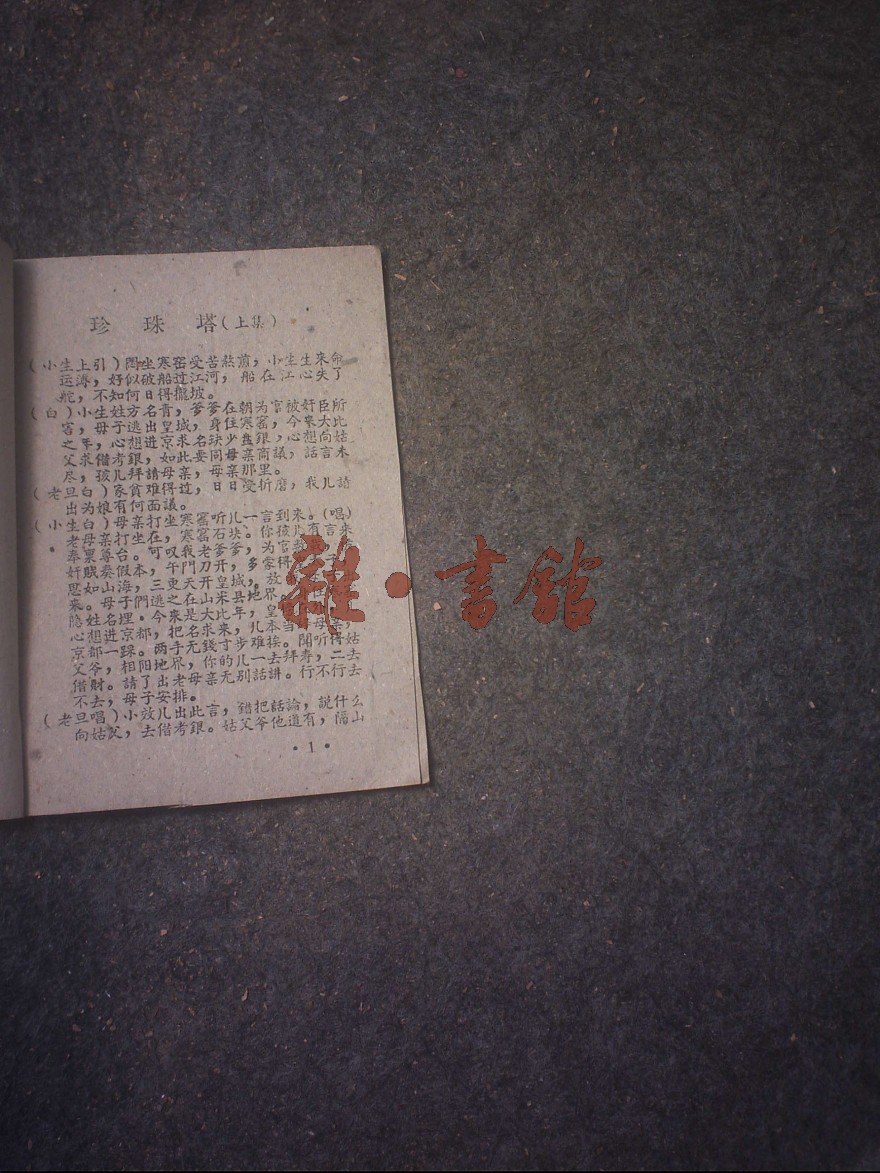 珍 珠 塔(上集)
(小生上引)悶坐寒窑受苦熬煎,小生生来命
运海,好似破船过江河,船在江心失了
舵,不知何日得儱坡。
(白)小生姓方名青,爹爹在朝为官被奸臣所
害,母子逃出皇城,身住寒窰,今来大比
之年,心想进京求名缺少盘銀,心想向姑
父求借考銀,如此要同母亲商議,話言未
尽,孩儿拜請母亲,母亲那里。
(老旦白)家貧难得过,日日受折磨,我儿請
出为娘有何面議。
(小生白)母亲打坐寒窰听儿一言到来。(唱)
老母亲打坐在,寒窰石块。你孩儿有言来
奉禀尊台。可叹我老爹爹,为官
奸賊奏假本,午門刀开,多蒙得
恩如山海,三更天开皇城,放
来。母子們逃之在山米县地界,
隐姓名埋。今来是大比年,皇
心想进京都,把名求来,儿本当 母亲,
京都一踩。两手无錢寸步难挨。聞听得姑
父爷,相阳地界,你的儿一去拜寿,二去
借財。請了出老母亲无别話訲。行不行去
不去,母子安排。
(老旦唱)小效儿出此言,錯把話論,説什么
向姑父,去借考銀。姑父爷他道有,隔山
·1·
雜·書館